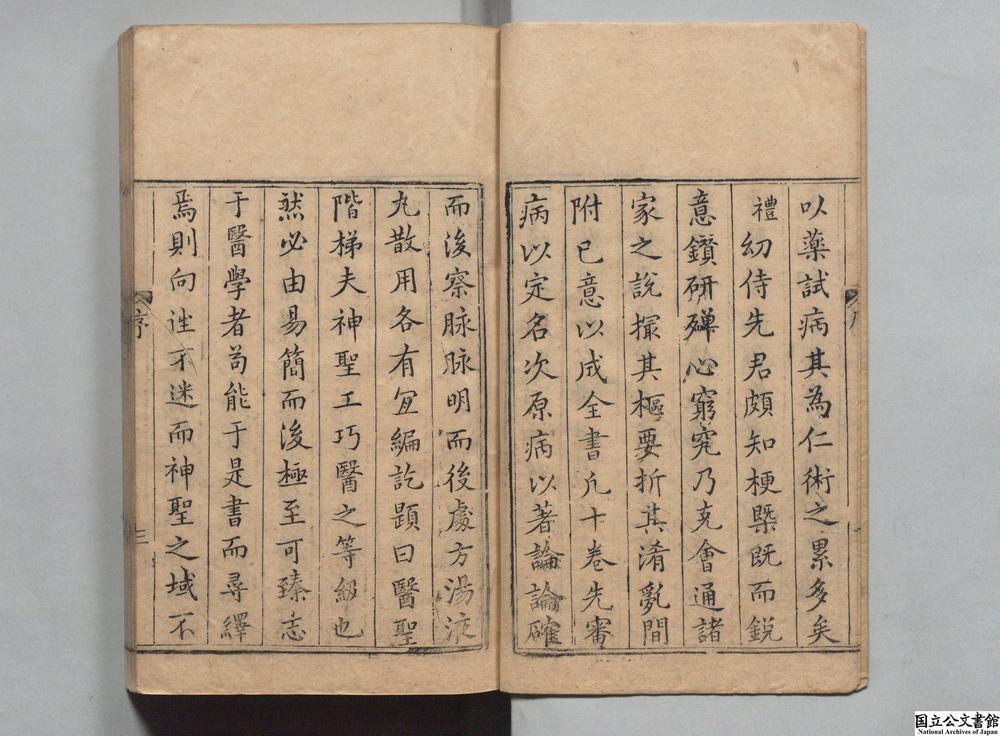 以藥試病其為仁術之累多矣
禮幼侍先君頗知梗槩既而銳
意鑽研殫心窮究乃克會通諸
家之說撮其樞要折其淆亂間
附已意以成全書凢十卷先審
病以定名次原病以著論論確
而後察脉脉明而後處方湯液
丸散用各有宜編訖題曰醫聖
階梯夫神聖工巧醫之等級也
然必由易簡而後極至可臻志
于醫學者苟能于是書而尋繹
焉則向迷不迷而神聖之域不
序
三
国立公文書館
National Archives of Japan